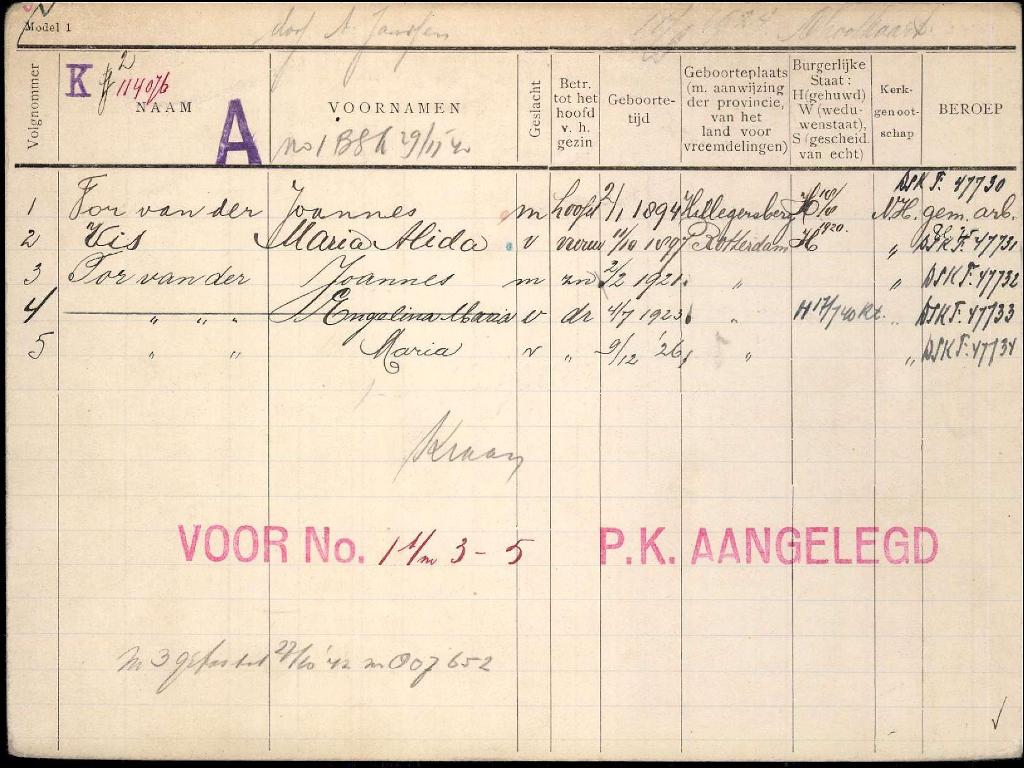 Model 1
dos A. Janssen
K 2 114076 A
Volgnommer NAAM VOORNAMEN Geslacht Betr. tot het hoofd v. h. gezin Geboorte- tijd Geboorteplaats (m. aanwijzing der provincie, van het land voor vreemdelingen) Burgerlijke Staat: H (gehuwd) W (wedu- wenstaat), S (gescheid. van echt) Kerk- genoot- schap BEROEP
no 1 BSK 29/11 40
DSK F. 47730
1 Tor van der Joannes m hoofd 2/1 1894 Hillegersberg H NH. gem. arb.
2 Vis Maria Alida v vrouw 11/10 1897 Rotterdam H 1920. " DSK F. 47731
3 Tor van der Joannes m zn 2/2 1921. " " DSK F. 47732
4 " " " Engelina Maria v dr 4/7 1923 " H 17/7 40 Rt. " DSK F. 47733
5 " " Maria v " 9/12 '26 " " DSK F. 47734
Kraan
VOOR No. 1 t/m 3 - 5 P.K. AANGELEGD
27/10 '42 007652